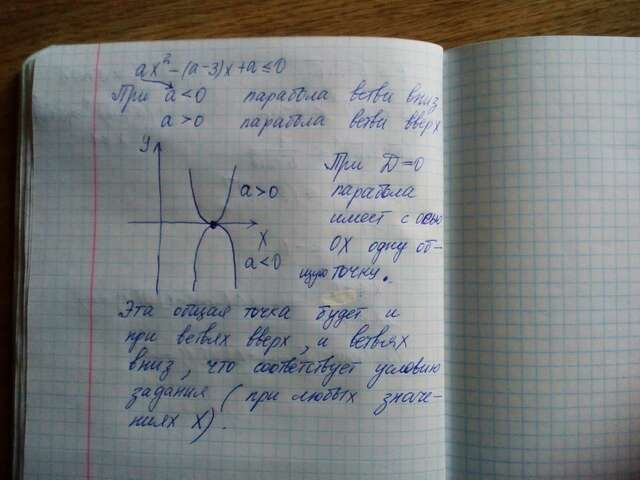 ax² - (a-3)x + a ≤ 0
При a < 0 парабола ветви вниз
a > 0 парабола ветви вверх
y
a>0
x
a<0
При D=0
парабола
имеет с осью
OX одну об-
щую точку.
Эта общая точка будет и
при ветвях вверх, и ветвях
вниз, что соответствует условию
задания (при любых значе-
ниях X).